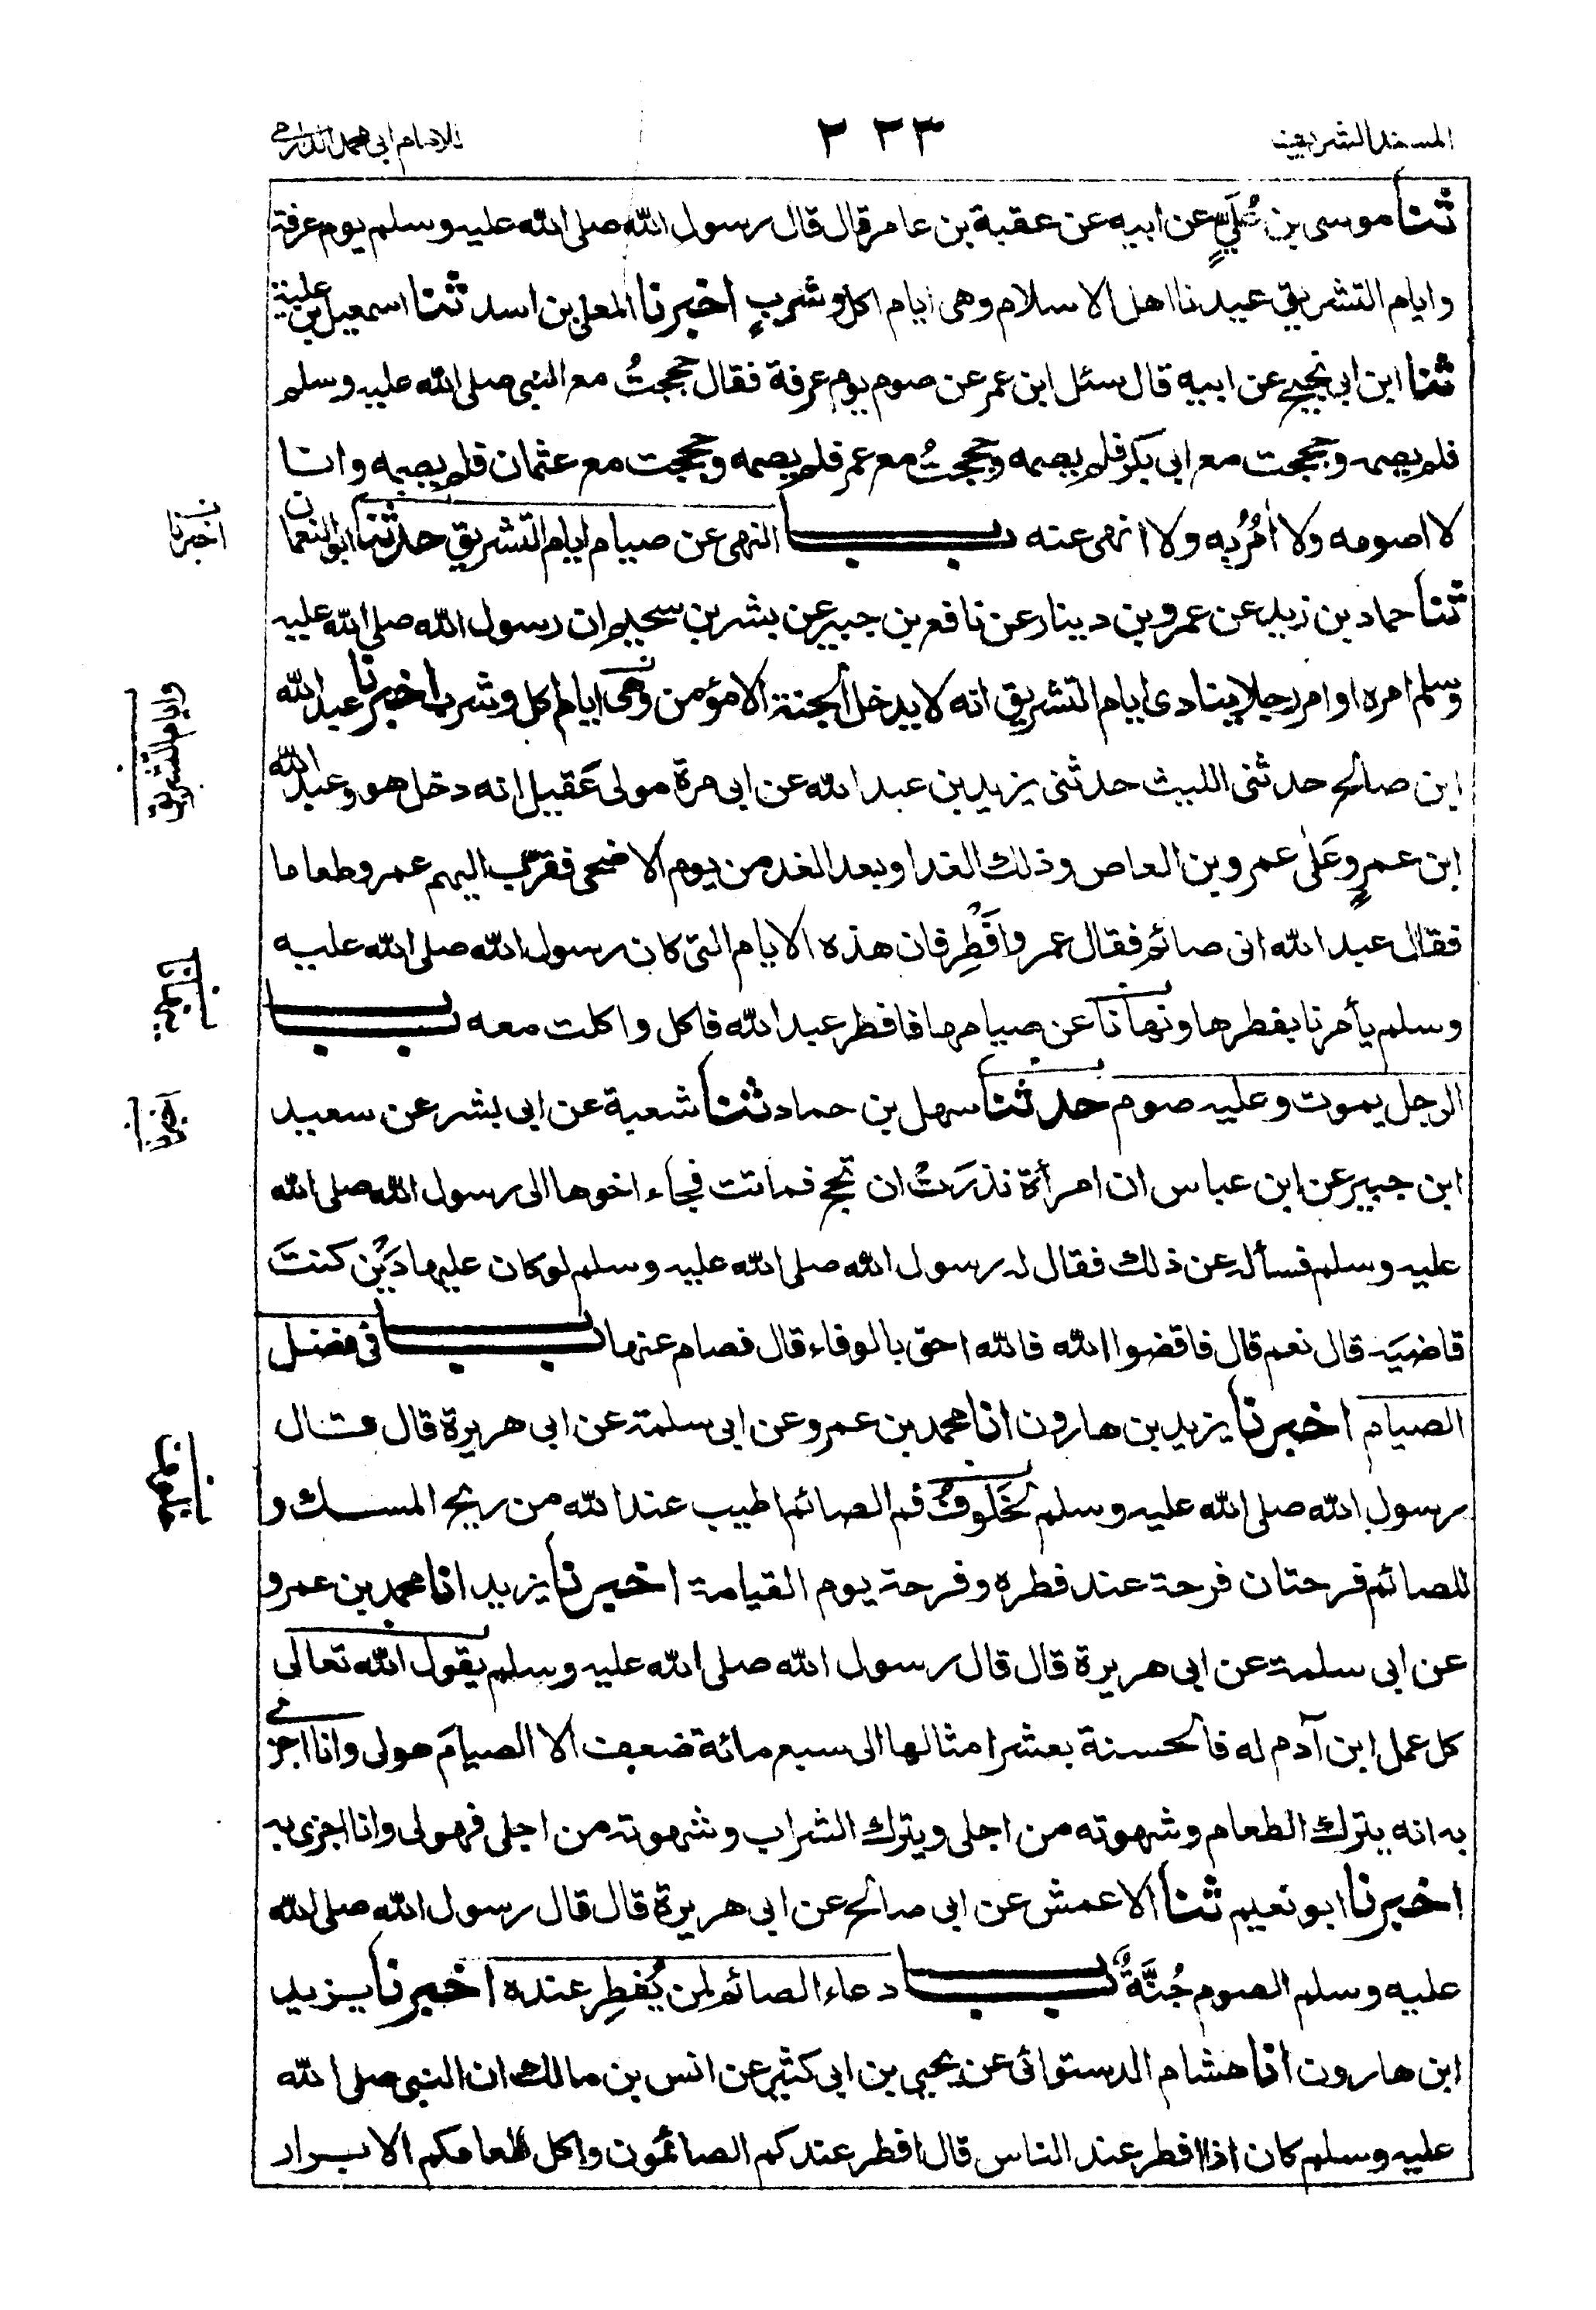 المسند الشريف
٢٣٣
للامام ابى محمد الدارمى
ثنا موسى بن عُلَيٍّ عن ابيه عن عقبة بن عامر قال قال رسول الله صلى الله عليه وسلم يوم عرفة
وايام التشريق عيدنا اهل الاسلام وهى ايام اكل وشربٍ اخبرنا المعلى بن اسد ثنا اسمعيل بن علية
ثنا ابن ابى نجيح عن ابيه قال سئل ابن عمر عن صوم يوم عرفة فقال حججتُ مع النبى صلى الله عليه وسلم
فلم يصمه وحججت مع ابى بكر فلم يصمه وحججتُ مع عمر فلم يصمه وحججت مع عثمان فلم يصمه وانا
لا اصومه ولا اٰمُرُبه ولا انهى عنه باب النهى عن صيام ايام التشريق حدثنا ابو النعمان
اخبرنا
ثنا حماد بن زيد عن عمرو بن دينار عن نافع بن جبير عن بشر بن سحيم ان رسول الله صلى الله عليه
وسلم امره او امر رجلا ينادى ايام التشريق انه لا يدخل الجنة الا مؤمن وهى ايام اكل وشرب اخبرنا عبد الله
وايام التشريق
ابن صالح حدثنى الليث حدثنى يزيد بن عبد الله عن ابى مرة مولى عَقيل انه دخل هو وعبد الله
ابن عمرٍو عَلٰى عمرو بن العاص وذلك الغد او بعد الغد من يوم الاضحى فقرَّب اليهم عمرو طعاما
فقال عبد الله انى صائم فقال عمرو اَفْطِر فان هذه الايام التى كان رسول الله صلى الله عليه
وسلم يأمرنا بفطرها ونهانا عن صيامها فافطر عبد الله فاكل واكلت معه باب
الرجل يموت وعليه صوم حدثنا سهل بن حماد ثنا شعبة عن ابى بشر عن سعيد
اخبرنا
ابن جبير عن ابن عباس ان امرأة نذرَتْ ان تحج فماتت فجاء اخوها الى رسول الله صلى الله
عليه وسلم فسأله عن ذلك فقال له رسول الله صلى الله عليه وسلم لو كان عليها دَيْن كنتَ
قاضيَه قال نعم قال فاقضوا الله فالله احق بالوفاء قال فصام عنها باب فى فضل
الصيام اخبرنا يزيد بن هارون انا محمد بن عمرو عن ابى سلمة عن ابى هريرة قال قال
رسول الله صلى الله عليه وسلم لخَلوفُ فم الصائم اطيب عند الله من ريح المسك و
للصائم فرحتان فرحة عند فطره وفرحة يوم القيامة اخبرنا يزيد انا محمد بن عمرو
عن ابى سلمة عن ابى هريرة قال قال رسول الله صلى الله عليه وسلم يقول الله تعالى
كل عمل ابن آدم له فالحسنة بعشر امثالها الى سبع مائة ضعف الا الصيامَ هو لى وانا اجزى
به انه يترك الطعام وشهوته من اجلى ويترك الشراب وشهوته من اجلى فهو لى وانا اجزى به
اخبرنا ابو نعيم ثنا الاعمش عن ابى صالح عن ابى هريرة قال قال رسول الله صلى الله
عليه وسلم الصوم جُنَّةٌ باب دعاء الصائم لمن يُفطِر عنده اخبرنا يزيد
ابن هارون انا هشام الدستوائى عن يحيى بن ابى كثير عن انس بن مالك ان النبى صلى الله
عليه وسلم كان اذا افطر عند الناس قال افطر عندكم الصائمون واكل طعامكم الابرار